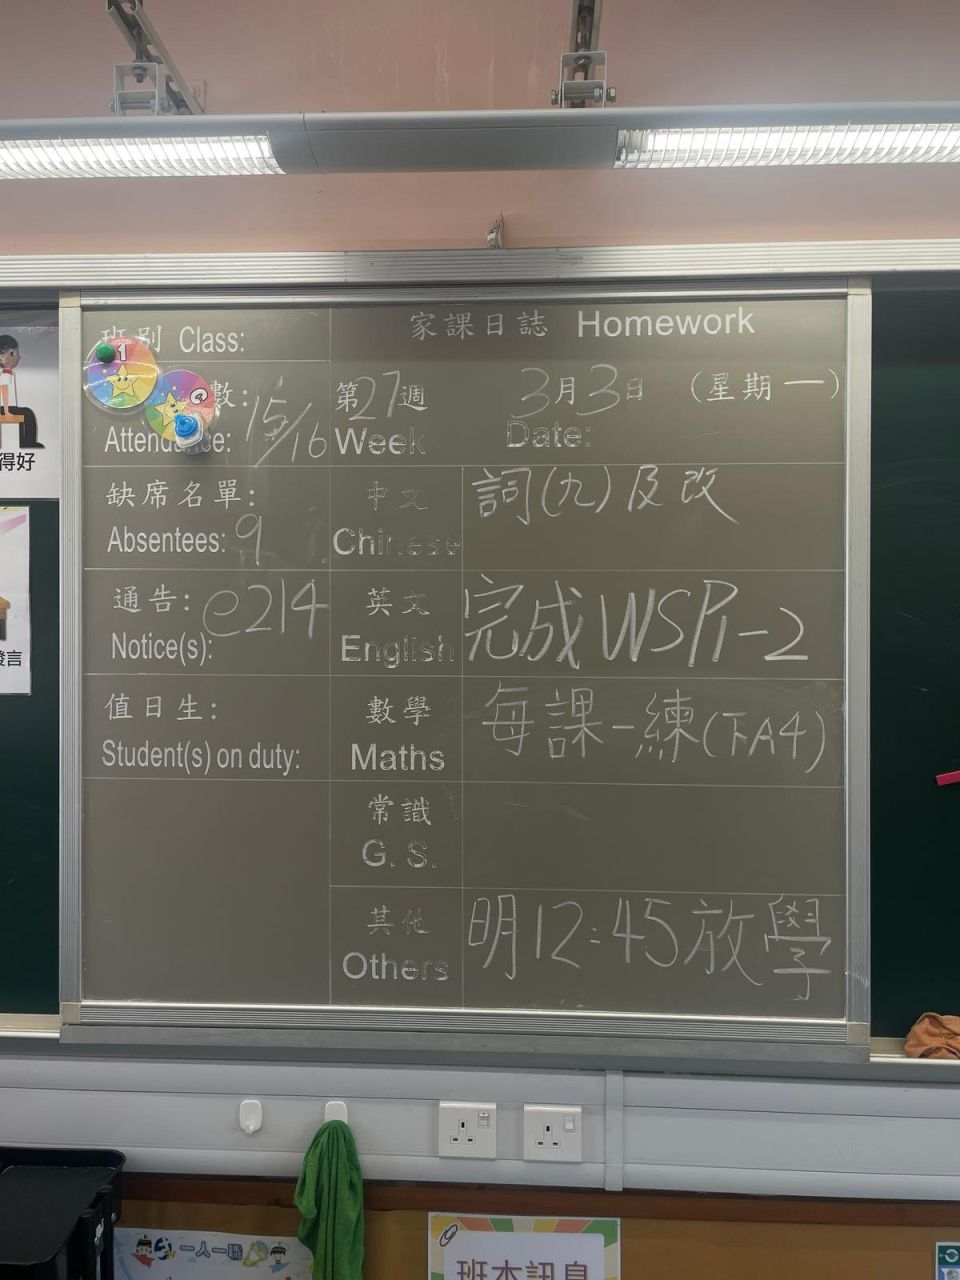 班別 Class:
家課日誌 Homework
1
數: 15/16
Attendance:
第27週
Week
3月3日 (星期一)
Date:
缺席名單:
Absentees: 9
中文
Chinese
詞(九)及改
通告: e214
Notice(s):
英文
English
完成WSP1-2
值日生:
Student(s) on duty:
數學
Maths
每課一練(下A4)
常識
G. S.
其他
Others
明12:45放學
得好
發言
一人一職
班本訊息